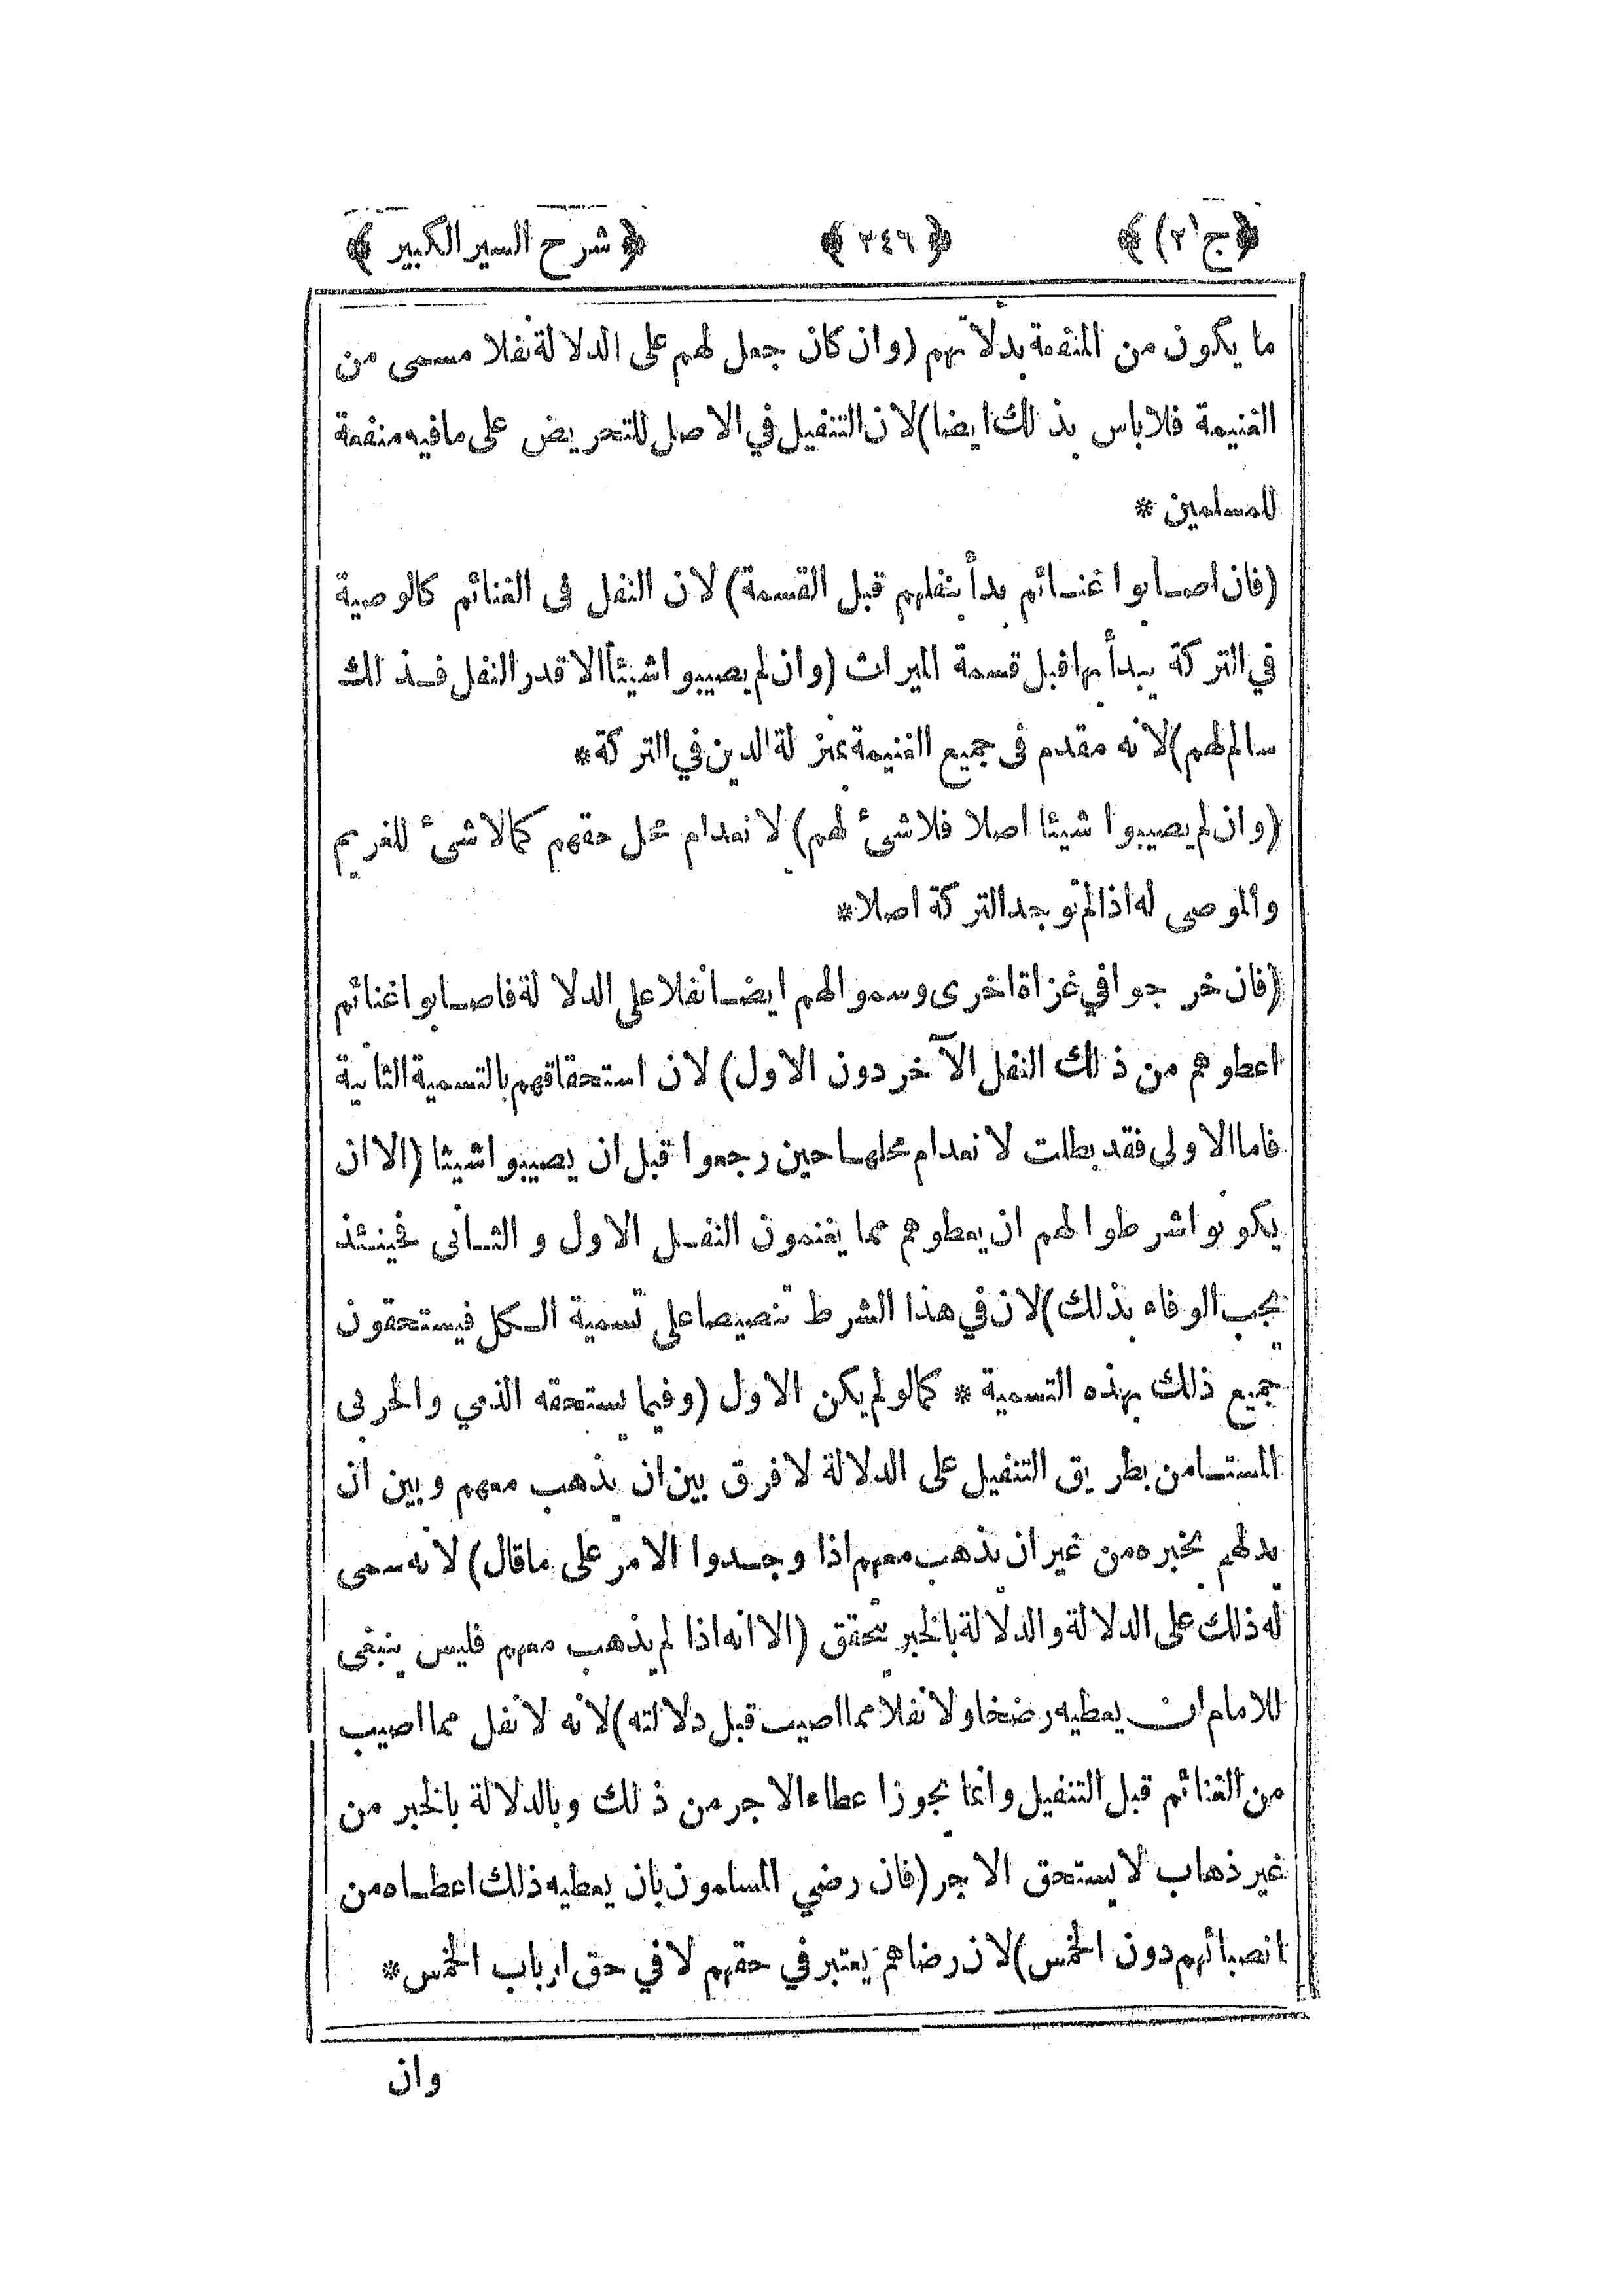 ﴿ شرح السير الكبير ﴾ ﴿ ٢٤٦ ﴾ ﴿ ج (٢) ﴾
ما يكون من المنفعة بدلالتهم (وان كان جعل لهم على الدلالة نفلا مسمى من
الغنيمة فلا باس بذلك ايضا) لان التنفيل في الاصل للتحريض على ما فيه منفعة
للمسلمين *
(فان اصابوا غنائم بدأ بنفلهم قبل القسمة) لان النفل فى الغنائم كالوصية
في التركة يبدأ بها قبل قسمة الميراث (وان لم يصيبوا شيئا الا قدر النفل فذلك
سالم لهم) لانه مقدم فى جميع الغنيمة بمنزلة الدين في التركة *
(وان لم يصيبوا شيئا اصلا فلا شئ لهم) لانعدام محل حقهم كمالا شئ للغريم
والموصى له اذا لم توجد التركة اصلا *
(فان خرجوا في غزاة اخرى وسموا لهم ايضا نفلا على الدلالة فاصابوا غنائم
اعطوهم من ذلك النفل الآخر دون الاول) لان استحقاقهم بالتسمية الثانية
فاما الاولى فقد بطلت لانعدام محلها حين رجعوا قبل ان يصيبوا شيئا (الا ان
يكونوا شرطوا لهم ان يعطوهم مما يغنمون النفل الاول و الثانى فحينئذ
يجب الوفاء بذلك) لان في هذا الشرط تنصيصا على تسمية الكل فيستحقون
جميع ذلك بهذه التسمية * كما لو لم يكن الاول (وفيما يستحقه الذمي والحربى
المستامن بطريق التنفيل على الدلالة لا فرق بين ان يذهب معهم وبين ان
يدلهم بخبره من غير ان يذهب معهم اذا وجدوا الامر على ما قال) لانه سمى
له ذلك على الدلالة والدلالة بالخبر تتحقق (الا انه اذا لم يذهب معهم فليس ينبغى
للامام ان يعطيه رضخا ولا نفلا مما اصيب قبل دلالته) لانه لا نفل مما اصيب
من الغنائم قبل التنفيل وانما يجوز اعطاء الاجر من ذلك وبالدلالة بالخبر من
غير ذهاب لا يستحق الاجر (فان رضي المسلمون بان يعطيه ذلك اعطاه من
انصبائهم دون الخمس) لان رضاهم يعتبر في حقهم لا في حق ارباب الخمس *
وان